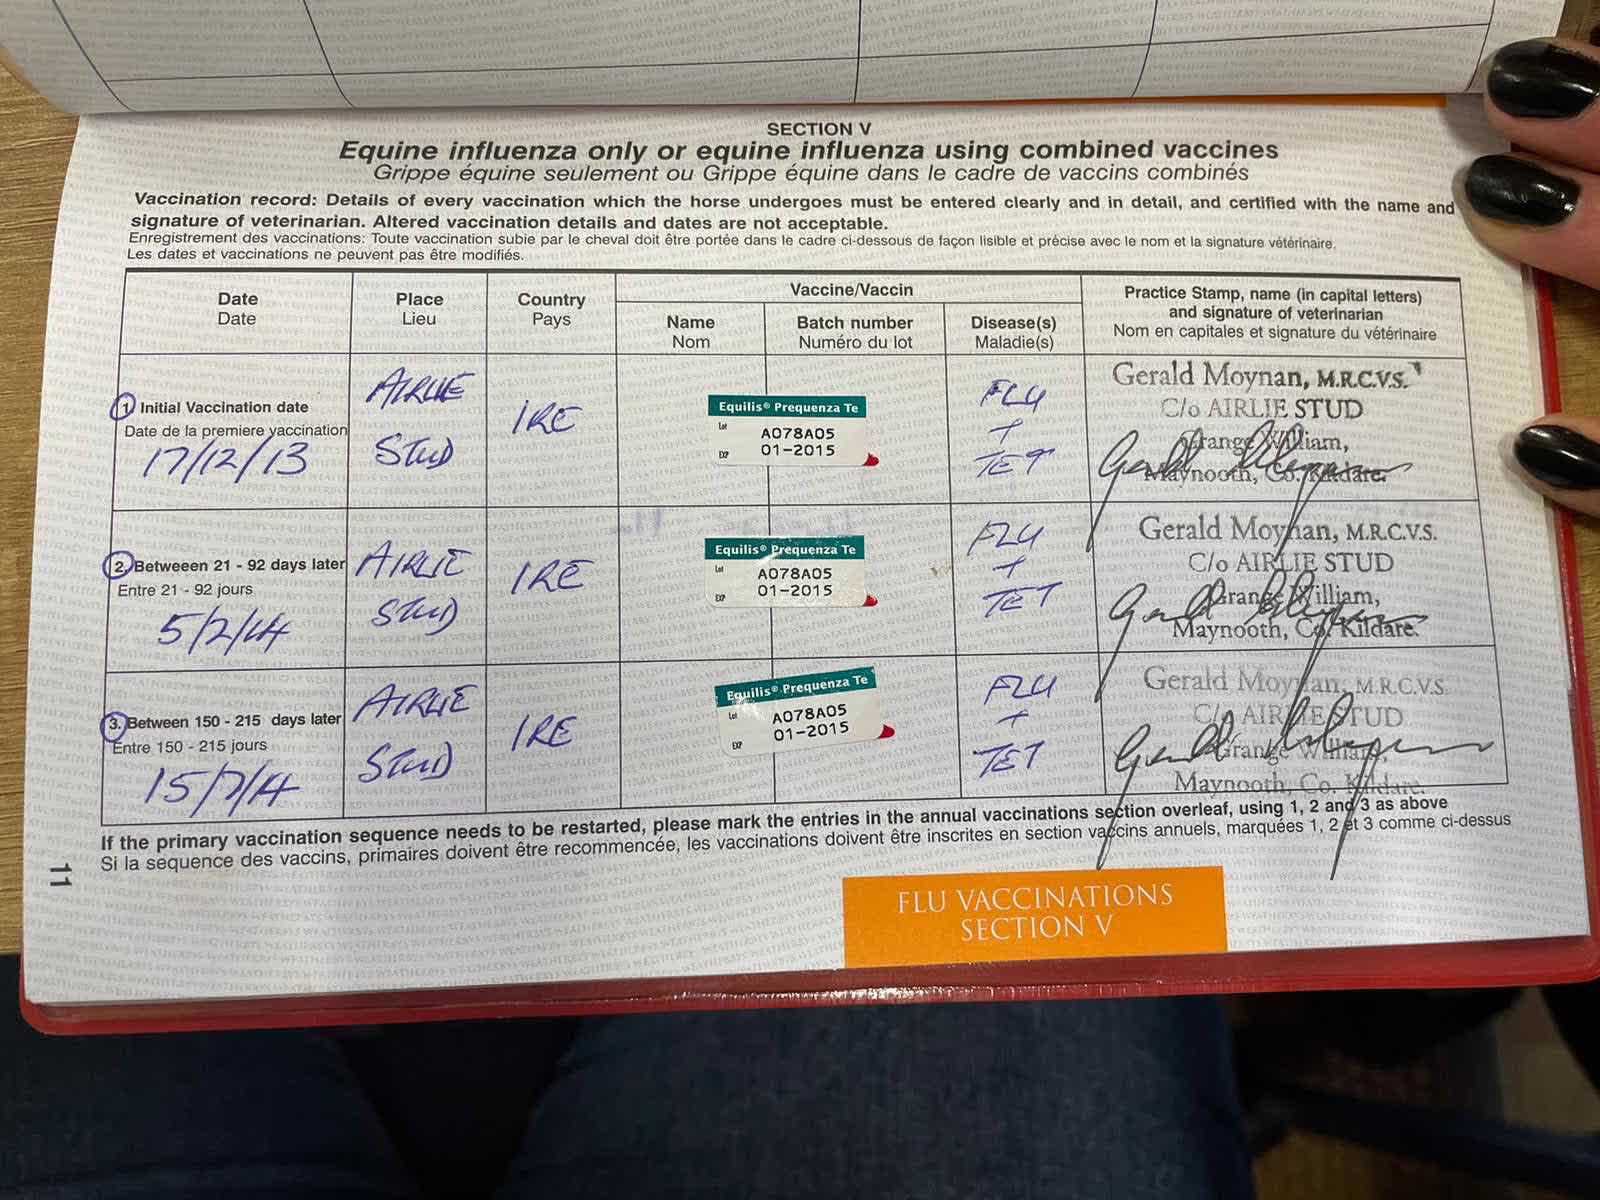 SECTION V
Equine influenza only or equine influenza using combined vaccines
Grippe équine seulement ou Grippe équine dans le cadre de vaccins combinés
Vaccination record: Details of every vaccination which the horse undergoes must be entered clearly and in detail, and certified with the name and
signature of veterinarian. Altered vaccination details and dates are not acceptable.
Enregistrement des vaccinations: Toute vaccination subie par le cheval doit être portée dans le cadre ci-dessous de façon lisible et précise avec le nom et la signature vétérinaire.
Les dates et vaccinations ne peuvent pas être modifiés.
Date
Date
Place
Lieu
Country
Pays
Vaccine/Vaccin
Name
Nom
Batch number
Numéro du lot
Disease(s)
Maladie(s)
Practice Stamp, name (in capital letters)
and signature of veterinarian
Nom en capitales et signature du vétérinaire
1 Initial Vaccination date
Date de la premiere vaccination
17/12/13
AIRLIE
STUD
IRE
Equilis® Prequenza Te
Lot A078A05
EXP 01-2015
FLU
+
TET
Gerald Moynan, M.R.C.V.S.
C/o AIRLIE STUD
Grange William,
Maynooth, Co. Kildare.
2. Betweeen 21 - 92 days later
Entre 21 - 92 jours
5/2/14
AIRLIE
STUD
IRE
Equilis® Prequenza Te
Lot A078A05
EXP 01-2015
FLU
+
TET
Gerald Moynan, M.R.C.V.S.
C/o AIRLIE STUD
Grange William,
Maynooth, Co. Kildare.
3. Between 150 - 215 days later
Entre 150 - 215 jours
15/7/14
AIRLIE
STUD
IRE
Equilis® Prequenza Te
Lot A078A05
EXP 01-2015
FLU
+
TET
Gerald Moynan, M.R.C.V.S.
C/o AIRLIE STUD
Grange William,
Maynooth, Co. Kildare.
If the primary vaccination sequence needs to be restarted, please mark the entries in the annual vaccinations section overleaf, using 1, 2 and 3 as above
Si la séquence des vaccins, primaires doivent être recommencée, les vaccinations doivent être inscrites en section vaccins annuels, marquées 1, 2 et 3 comme ci-dessus
11
FLU VACCINATIONS
SECTION V